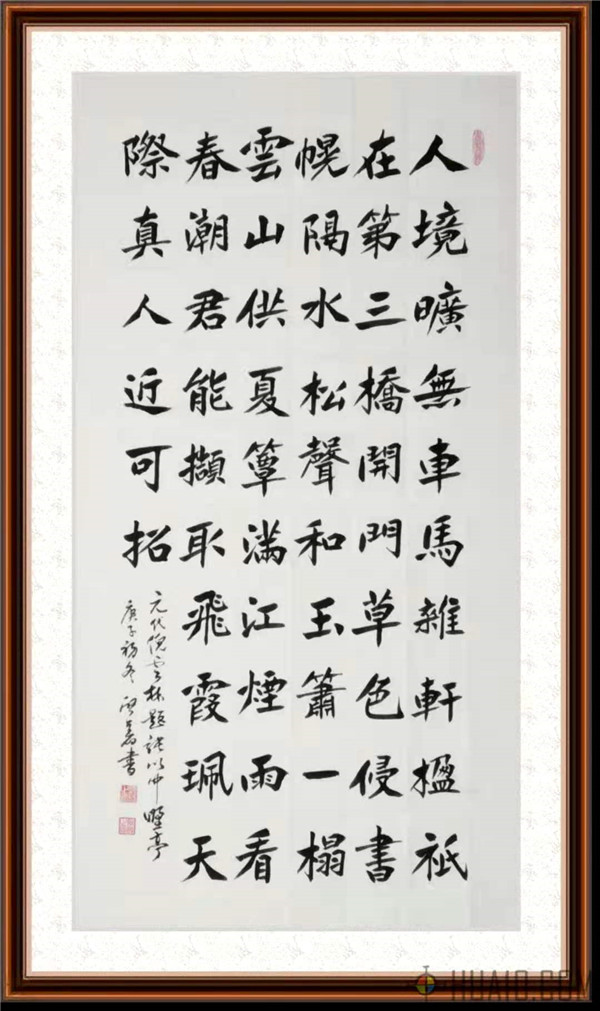 人境曠無車馬雜軒楹祇
在第三橋開門草色侵書
幌隔水松聲和玉簫一榻
雲山供夏簟滿江煙雨看
春潮君能擷取飛霞珮天
際真人近可招
元代倪云林題張以中野亭
庚子初冬書
HUA10.COM